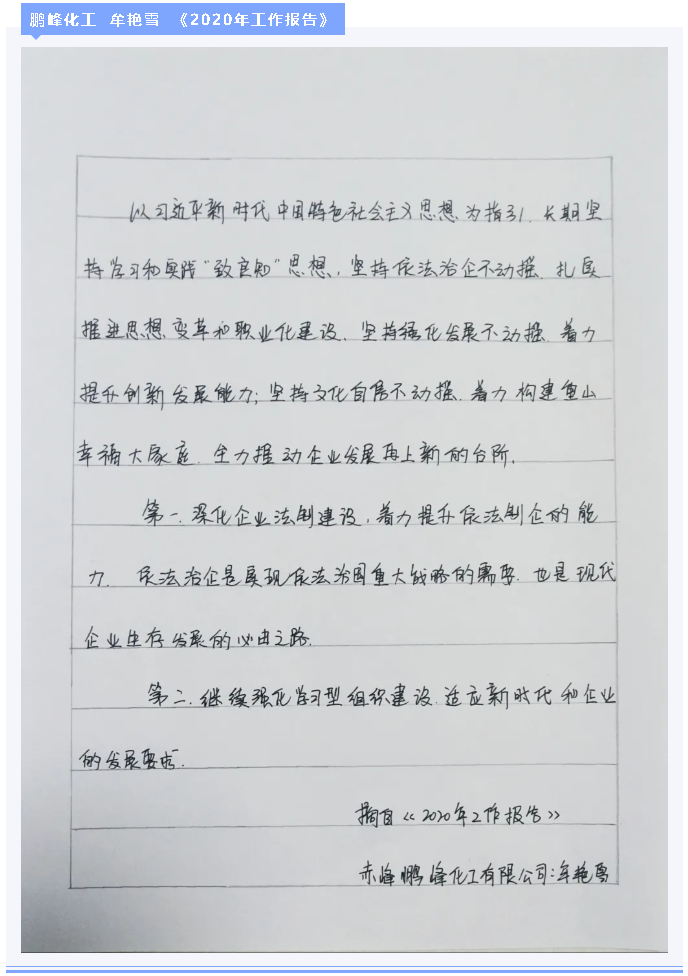 鹏峰化工 牟艳雪 《2020年工作报告》
以习近平新时代中国特色社会主义思想为指引，长期坚
持学习和实践“致良知”思想，坚持依法治企不动摇，扎实
推进思想变革和职业化建设，坚持强化发展不动摇，着力
提升创新发展能力；坚持文化自信不动摇，着力构建鱼山
幸福大家庭，全力推动企业发展再上新的台阶。
第一，深化企业法制建设，着力提升依法制企的能
力。依法治企是实现依法治国重大战略的需要，也是现代
企业生存发展的必由之路。
第二，继续强化学习型组织建设，适应新时代和企业
的发展要求。
摘自《2020年工作报告》
赤峰鹏峰化工有限公司：牟艳雪